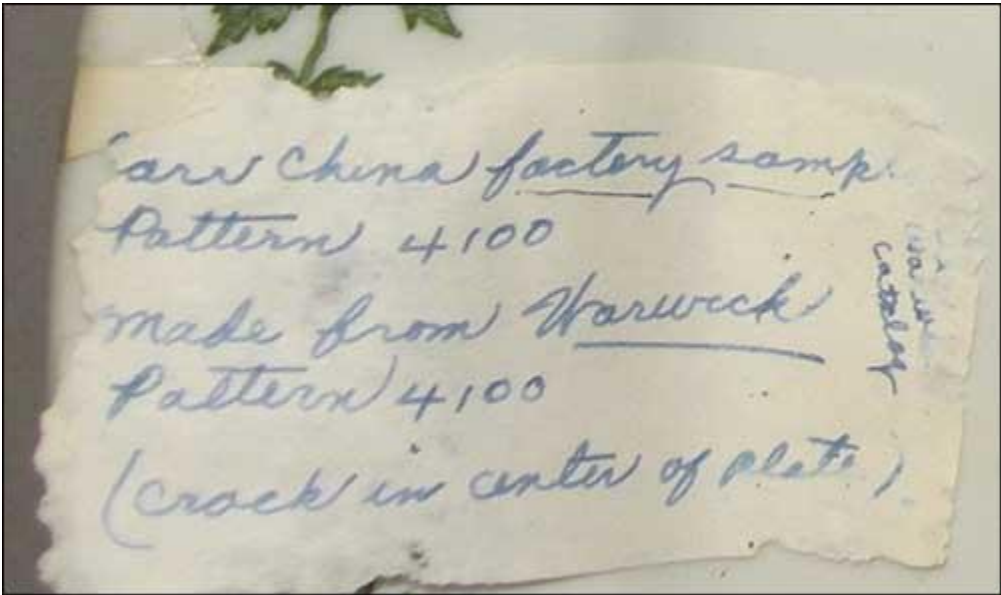 arr China factory samp
Pattern 4100
made from Warwick
Pattern 4100
(crack in center of plate)
catalog